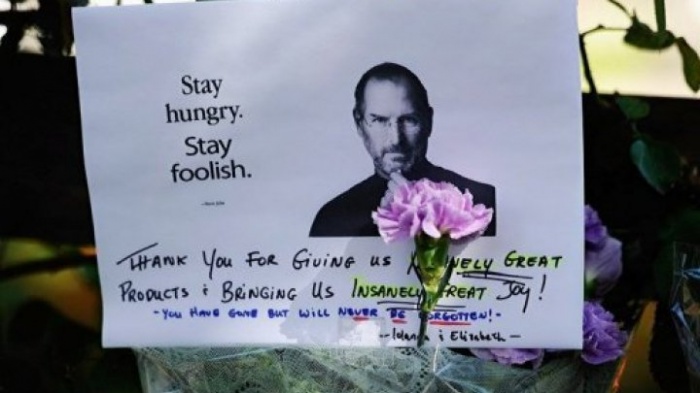 Stay
hungry.
Stay
foolish.
THANK YOU FOR GIVING US NELY GREAT
PRODUCTS & BRINGING US INSANELY GREAT JOY!
- YOU HAVE GONE BUT WILL NEVER BE FORGOTTEN! -
& Elizabeth -